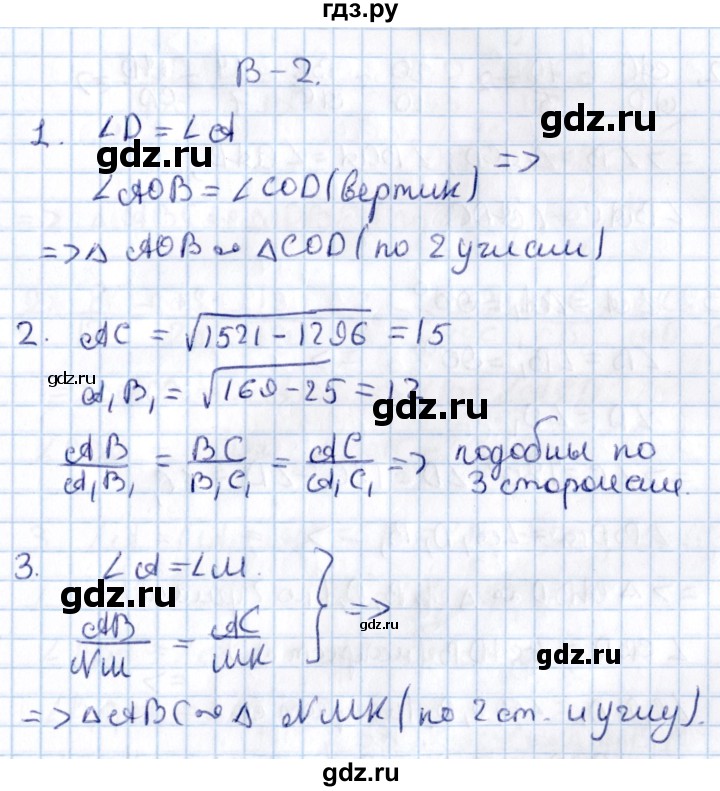 гдз.ру
В-2.
1. ∠D = ∠A
gdz.ru
gdz.ru
=>
∠AOB = ∠COD (вертик)
=> △ AOB ∾ △COD (по 2 углам)
2. AC = √1521-1296 = 15
gdz.ru
A₁B₁ = √169-25 = 12
gdz.ru
AB/A₁B₁ = BC/B₁C₁ = AC/A₁C₁ => подобны по
3 сторонам.
3. ∠A = ∠M.
gdz.ru
AB/NM = AC/MK } =>
gdz.ru
=> △ABC ∾ △ NMK (по 2 ст. и углу).
gdz.ru
gdz.ru